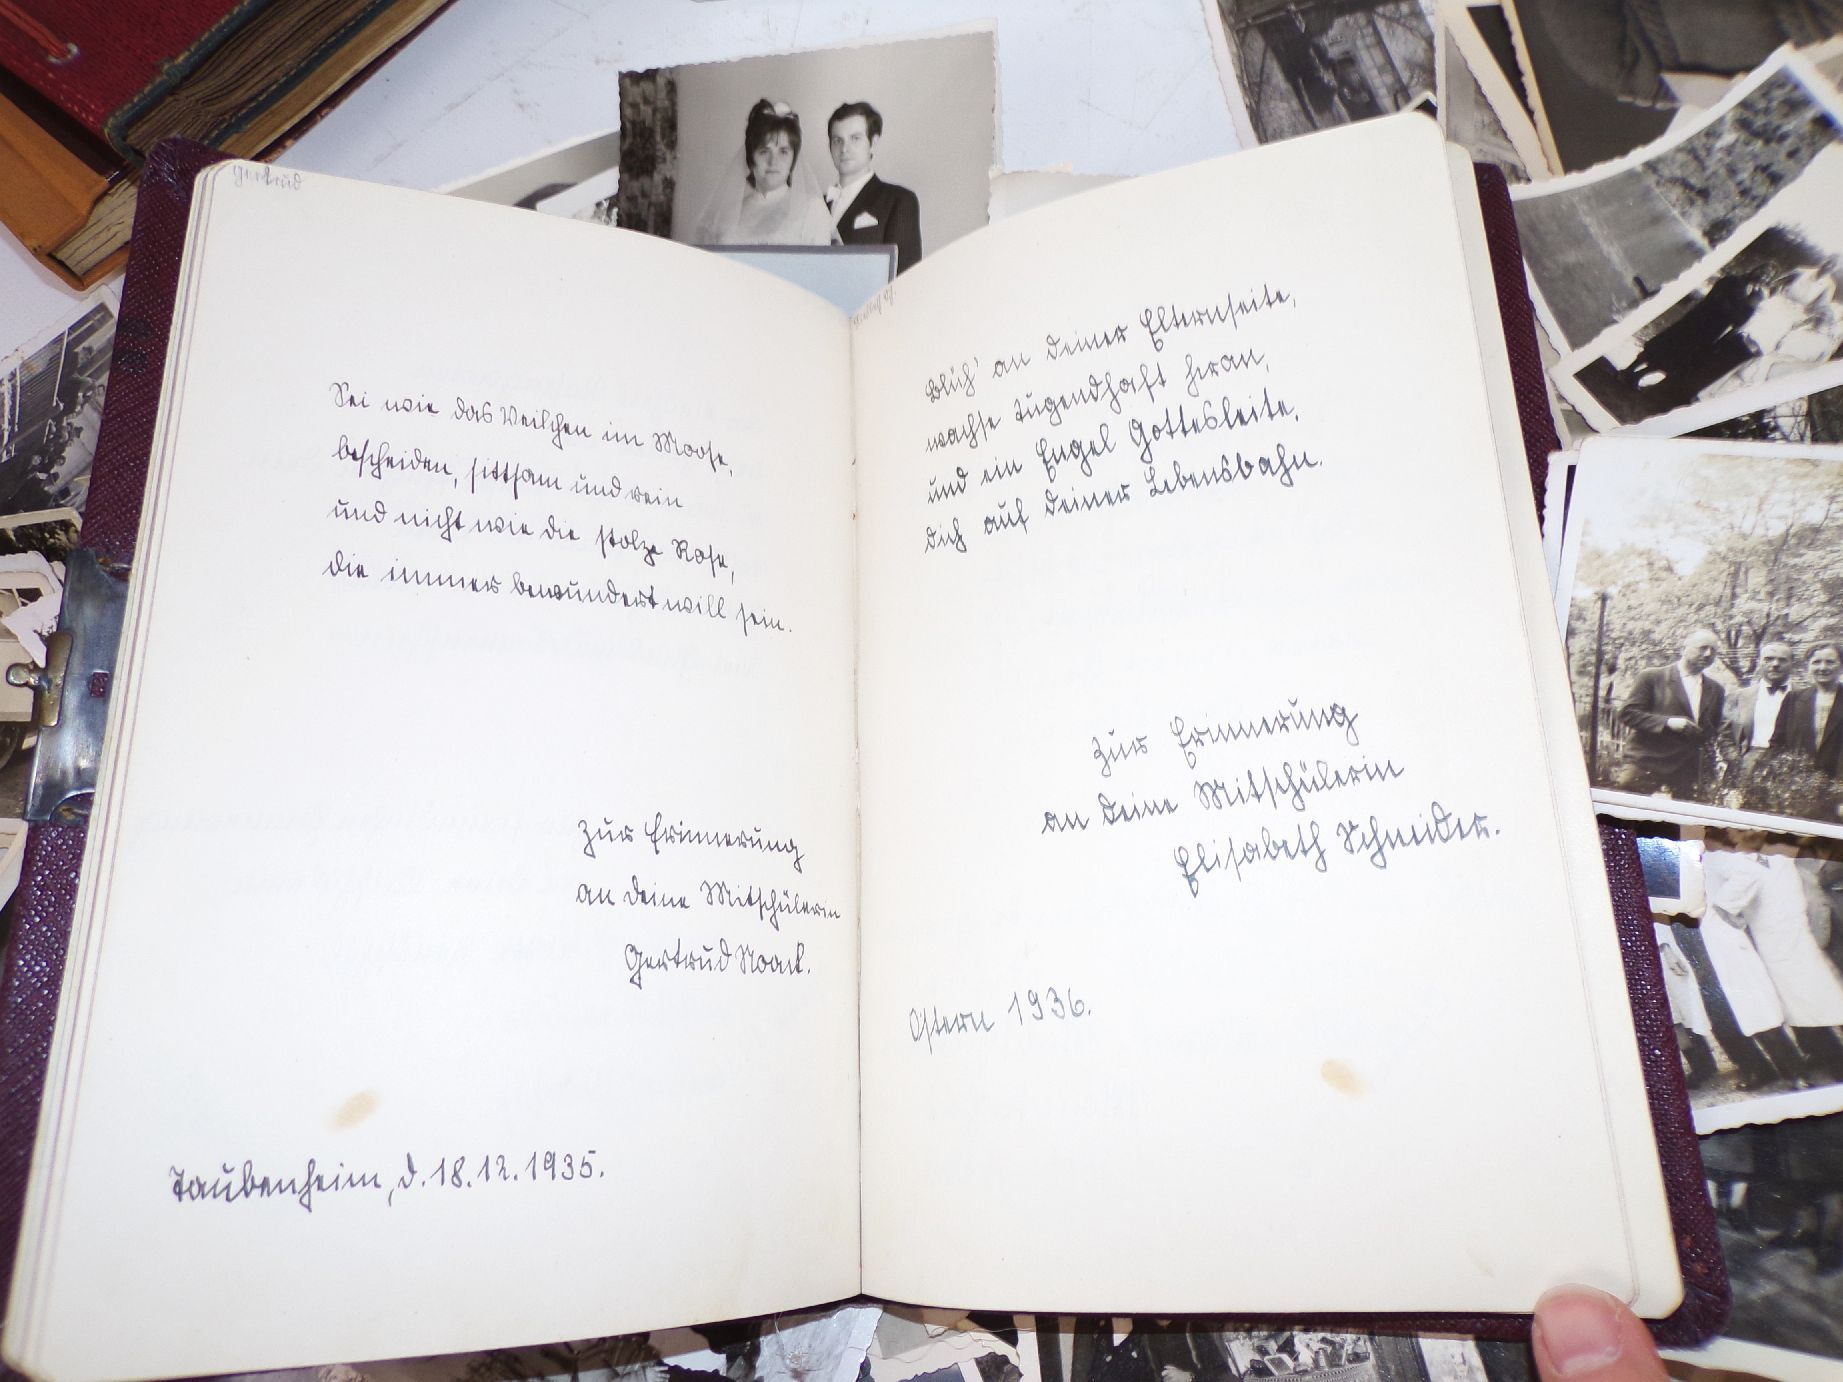 Gertrud
Sei wie das Veilchen im Moose,
bescheiden, sittsam und rein
und nicht wie die stolze Rose,
die immer bewundert will sein.
Zur Erinnerung
an deine Mitschülerin
Gertrud Noack.
Taubenheim, d. 18.12.1935.
Blüh' an deiner Elternseite,
wachse tugendhaft heran,
und ein Engel Gottesleite,
dich auf deiner Lebensbahn.
Zur Erinnerung
an deine Mitschülerin
Elisabeth Schneider.
Ostern 1936.